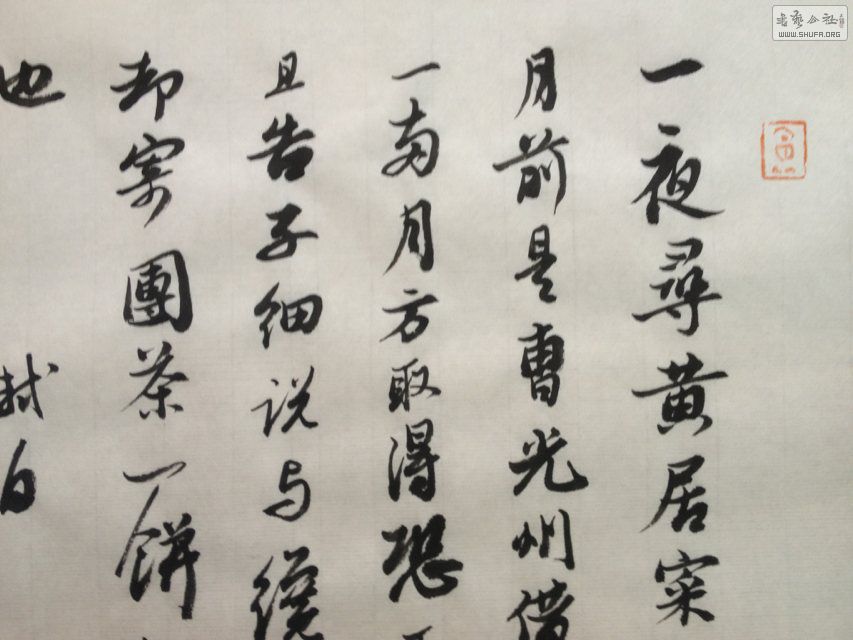 一夜尋黄居寀
月前是曹光州借
一两月方取得恐
且告子细说与纔
却寄團茶一餅
也
軾白
書藝公社
WWW.SHUFA.ORG